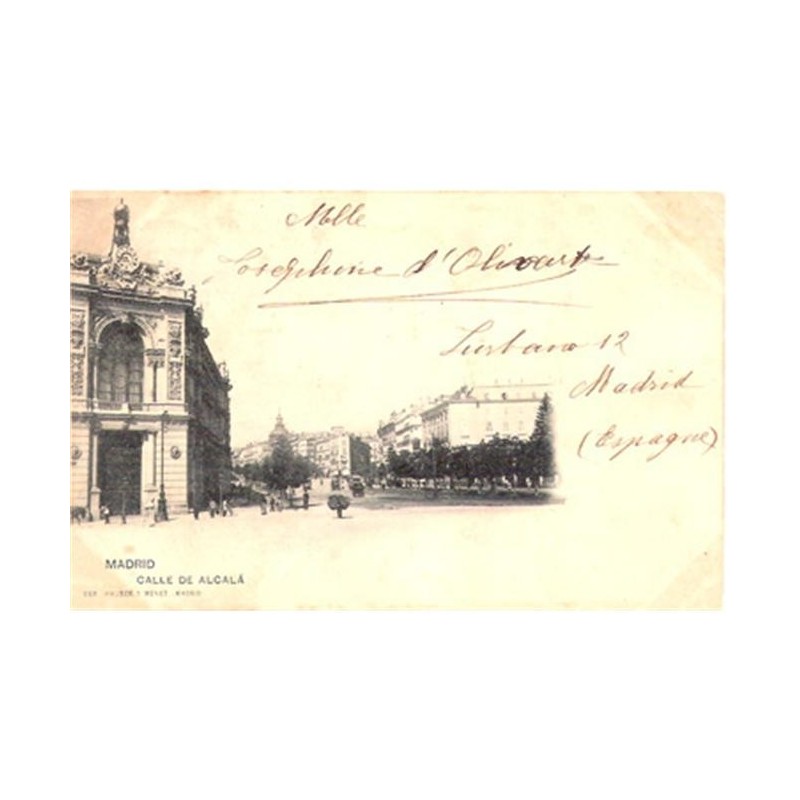 Mlle
Josephine d'Olivart
Lurbano 12
Madrid
(Espagne)
MADRID
CALLE DE ALCALÁ
HAUSER Y MENET. MADRID